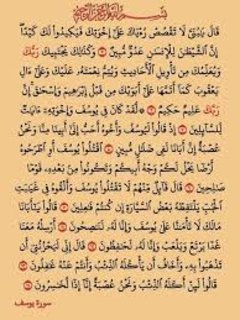 بسم الله الرحمن الرحيم
قَالَ يَابُنَيَّ لَا تَقْصُصْ رُءْيَاكَ عَلَىٰ إِخْوَتِكَ فَيَكِيدُوا لَكَ كَيْدًا
إِنَّ الشَّيْطَانَ لِلْإِنسَانِ عَدُوٌّ مُّبِينٌ ۝ وَكَذَٰلِكَ يَجْتَبِيكَ رَبُّكَ
وَيُعَلِّمُكَ مِن تَأْوِيلِ الْأَحَادِيثِ وَيُتِمُّ نِعْمَتَهُ عَلَيْكَ وَعَلَىٰ آلِ
يَعْقُوبَ كَمَا أَتَمَّهَا عَلَىٰ أَبَوَيْكَ مِن قَبْلُ إِبْرَاهِيمَ وَإِسْحَاقَ إِنَّ
رَبَّكَ عَلِيمٌ حَكِيمٌ ۝ لَّقَدْ كَانَ فِي يُوسُفَ وَإِخْوَتِهِ آيَاتٌ
لِّلسَّائِلِينَ ۝ إِذْ قَالُوا لَيُوسُفُ وَأَخُوهُ أَحَبُّ إِلَىٰ أَبِينَا مِنَّا وَنَحْنُ
عُصْبَةٌ إِنَّ أَبَانَا لَفِي ضَلَالٍ مُّبِينٍ ۝ اقْتُلُوا يُوسُفَ أَوِ اطْرَحُوهُ
أَرْضًا يَخْلُ لَكُمْ وَجْهُ أَبِيكُمْ وَتَكُونُوا مِن بَعْدِهِ قَوْمًا
صَالِحِينَ ۝ قَالَ قَائِلٌ مِّنْهُمْ لَا تَقْتُلُوا يُوسُفَ وَأَلْقُوهُ فِي غَيَابَتِ
الْجُبِّ يَلْتَقِطْهُ بَعْضُ السَّيَّارَةِ إِن كُنتُمْ فَاعِلِينَ ۝ قَالُوا يَا أَبَانَا
مَالَكَ لَا تَأْمَنَّا عَلَىٰ يُوسُفَ وَإِنَّا لَهُ لَنَاصِحُونَ ۝ أَرْسِلْهُ مَعَنَا
غَدًا يَرْتَعْ وَيَلْعَبْ وَإِنَّا لَهُ لَحَافِظُونَ ۝ قَالَ إِنِّي لَيَحْزُنُنِي أَن
تَذْهَبُوا بِهِ وَأَخَافُ أَن يَأْكُلَهُ الذِّئْبُ وَأَنتُمْ عَنْهُ غَافِلُونَ ۝
قَالُوا لَئِنْ أَكَلَهُ الذِّئْبُ وَنَحْنُ عُصْبَةٌ إِنَّا إِذًا لَّخَاسِرُونَ ۝
سورة يوسف